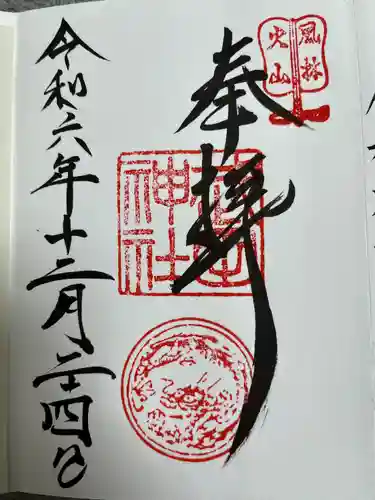 風林
火山
奉拝
神社
令和六年十二月二十四日